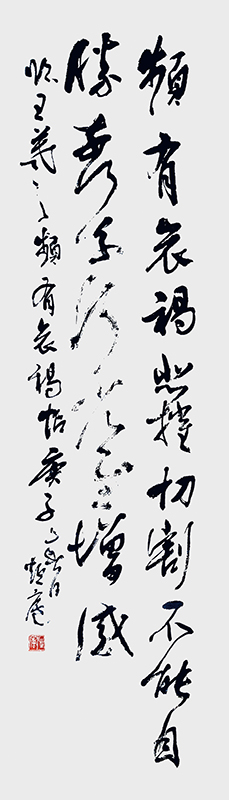 頻有哀禍悲摧切割不能自
勝奈何奈何省慰增感
臨王羲之頻有哀禍帖庚子春日庵